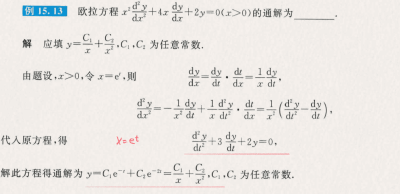 例 15.13 欧拉方程 x² d²y/dx² + 4x dy/dx + 2y = 0 (x>0) 的通解为________.
解 应填 y = C₁/x + C₂/x², C₁, C₂ 为任意常数.
由题设, x>0, 令 x = eᵗ, 则 dy/dx = dy/dt · dt/dx = 1/x dy/dt,
d²y/dx² = −1/x² dy/dt + 1/x d²y/dt² · dt/dx = 1/x² (d²y/dt² − dy/dt),
代入原方程, 得 x=eᵗ d²y/dt² + 3 dy/dt + 2y = 0,
解此方程得通解为 y = C₁e⁻ᵗ + C₂e⁻²ᵗ = C₁/x + C₂/x², C₁, C₂ 为任意常数.